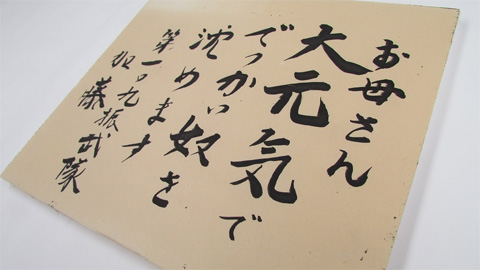 お母さん
大元気で
でっかい奴を
沈めます
第一〇九振武隊
加藤